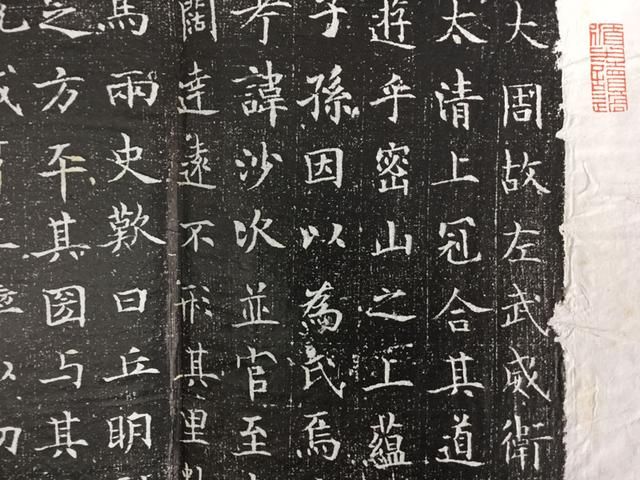 大周故左武威衛
太清上冠合其道
遊乎密山之上蘊
子孫因以為氏焉
諱沙次並官至
闊達遠不形其
馬兩史歎曰丘明
之方其与其